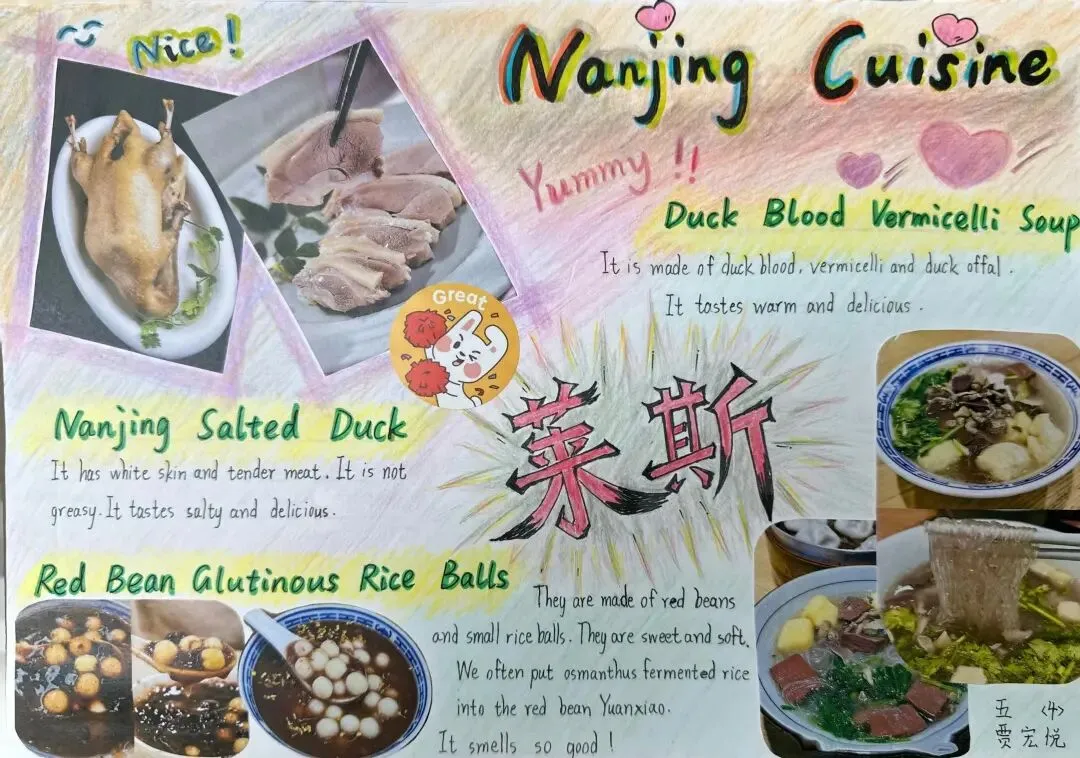 Nice!
Nanjing Cuisine
Yummy!!
Duck Blood Vermicelli Soup
It is made of duck blood, vermicelli and duck offal.
It tastes warm and delicious.
Great
莱斯
Nanjing Salted Duck
It has white skin and tender meat. It is not
greasy. It tastes salty and delicious.
Red Bean Glutinous Rice Balls
They are made of red beans
and small rice balls. They are sweet and soft.
We often put osmanthus fermented rice
into the red bean Yuanxiao.
It smells so good!
五〈4〉
贾宏悦